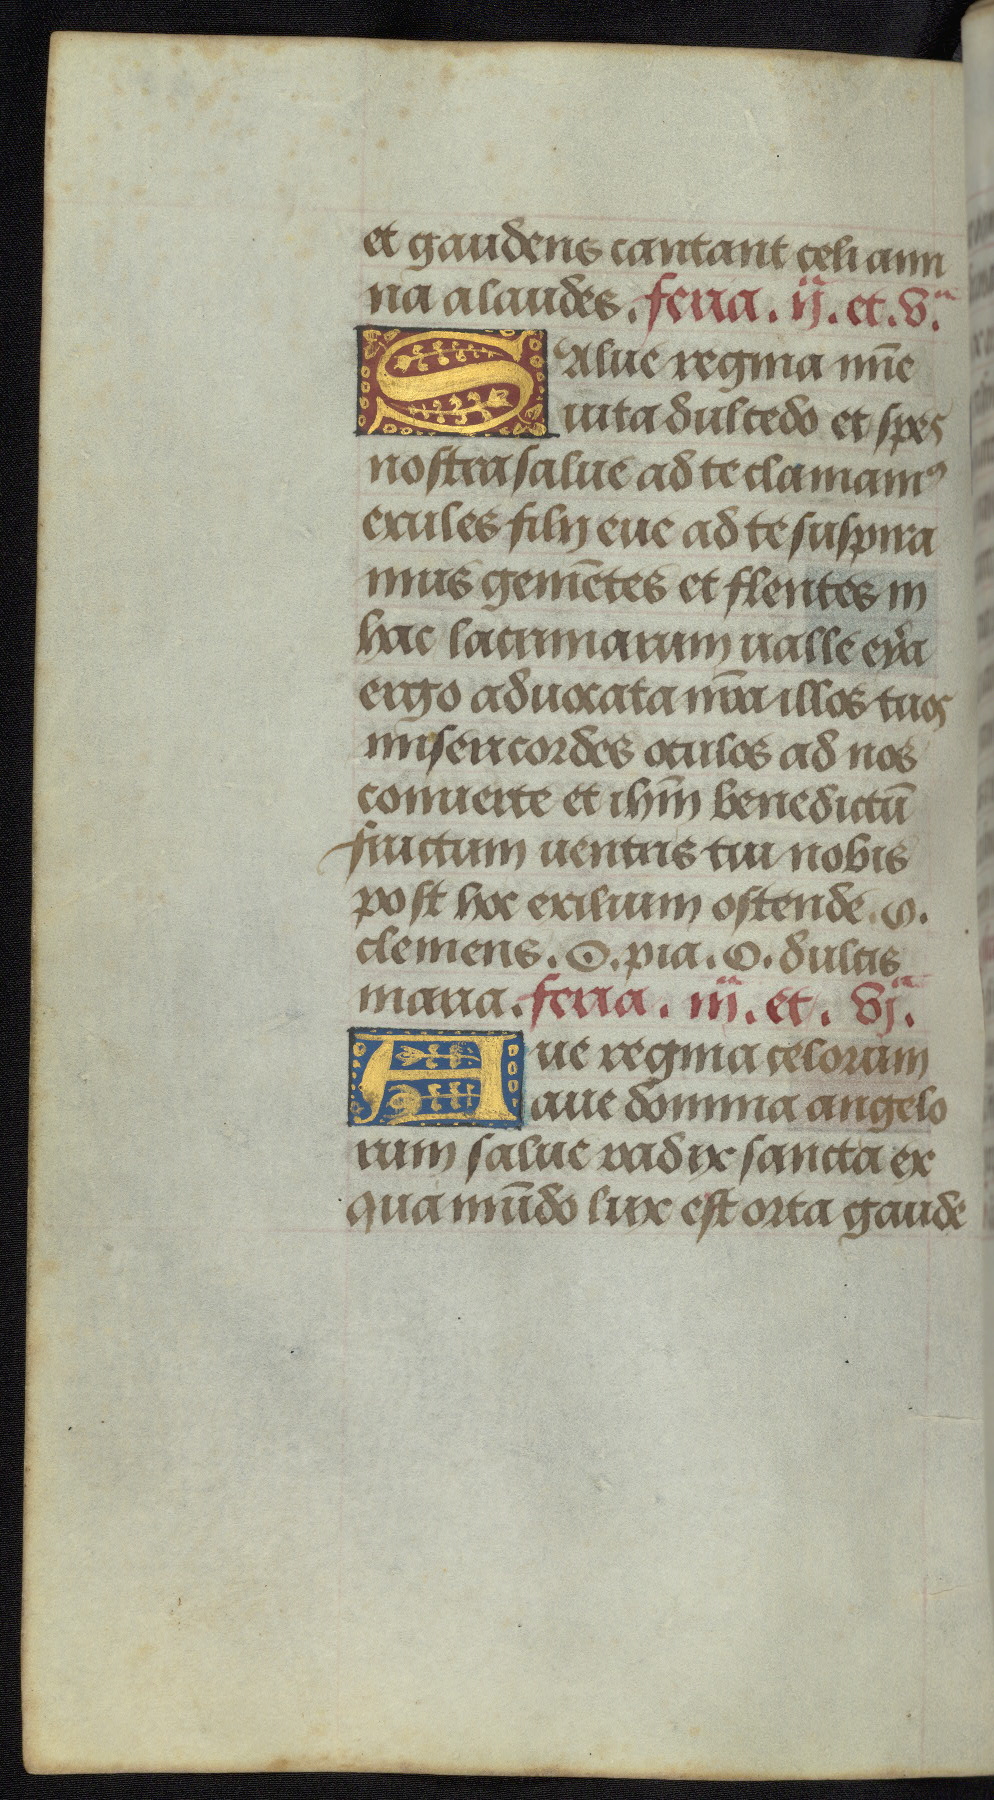 et gaudens cantant celi agmi
na alaudes. feria. ij. et. v.ᵃ
SAlue regina mīe
uita dulcedo et spes
nostra salue ad te clamamꝰ
exules filij eue ad te suspira
mus gemētes et flentes in
hac lacrimarum ualle eya
ergo aduocata nr̄a illos tuos
misericordes oculos ad nos
conuerte et ihm̄ benedictū
fructum uentris tui nobis
post hoc exilium ostende. O.
clemens. O. pia. O. dulcis
maria. feria. iij. et. vj.
Aue regina celorum
aue domina angelo
rum salue radix sancta ex
qua mūdo lux est orta gaude